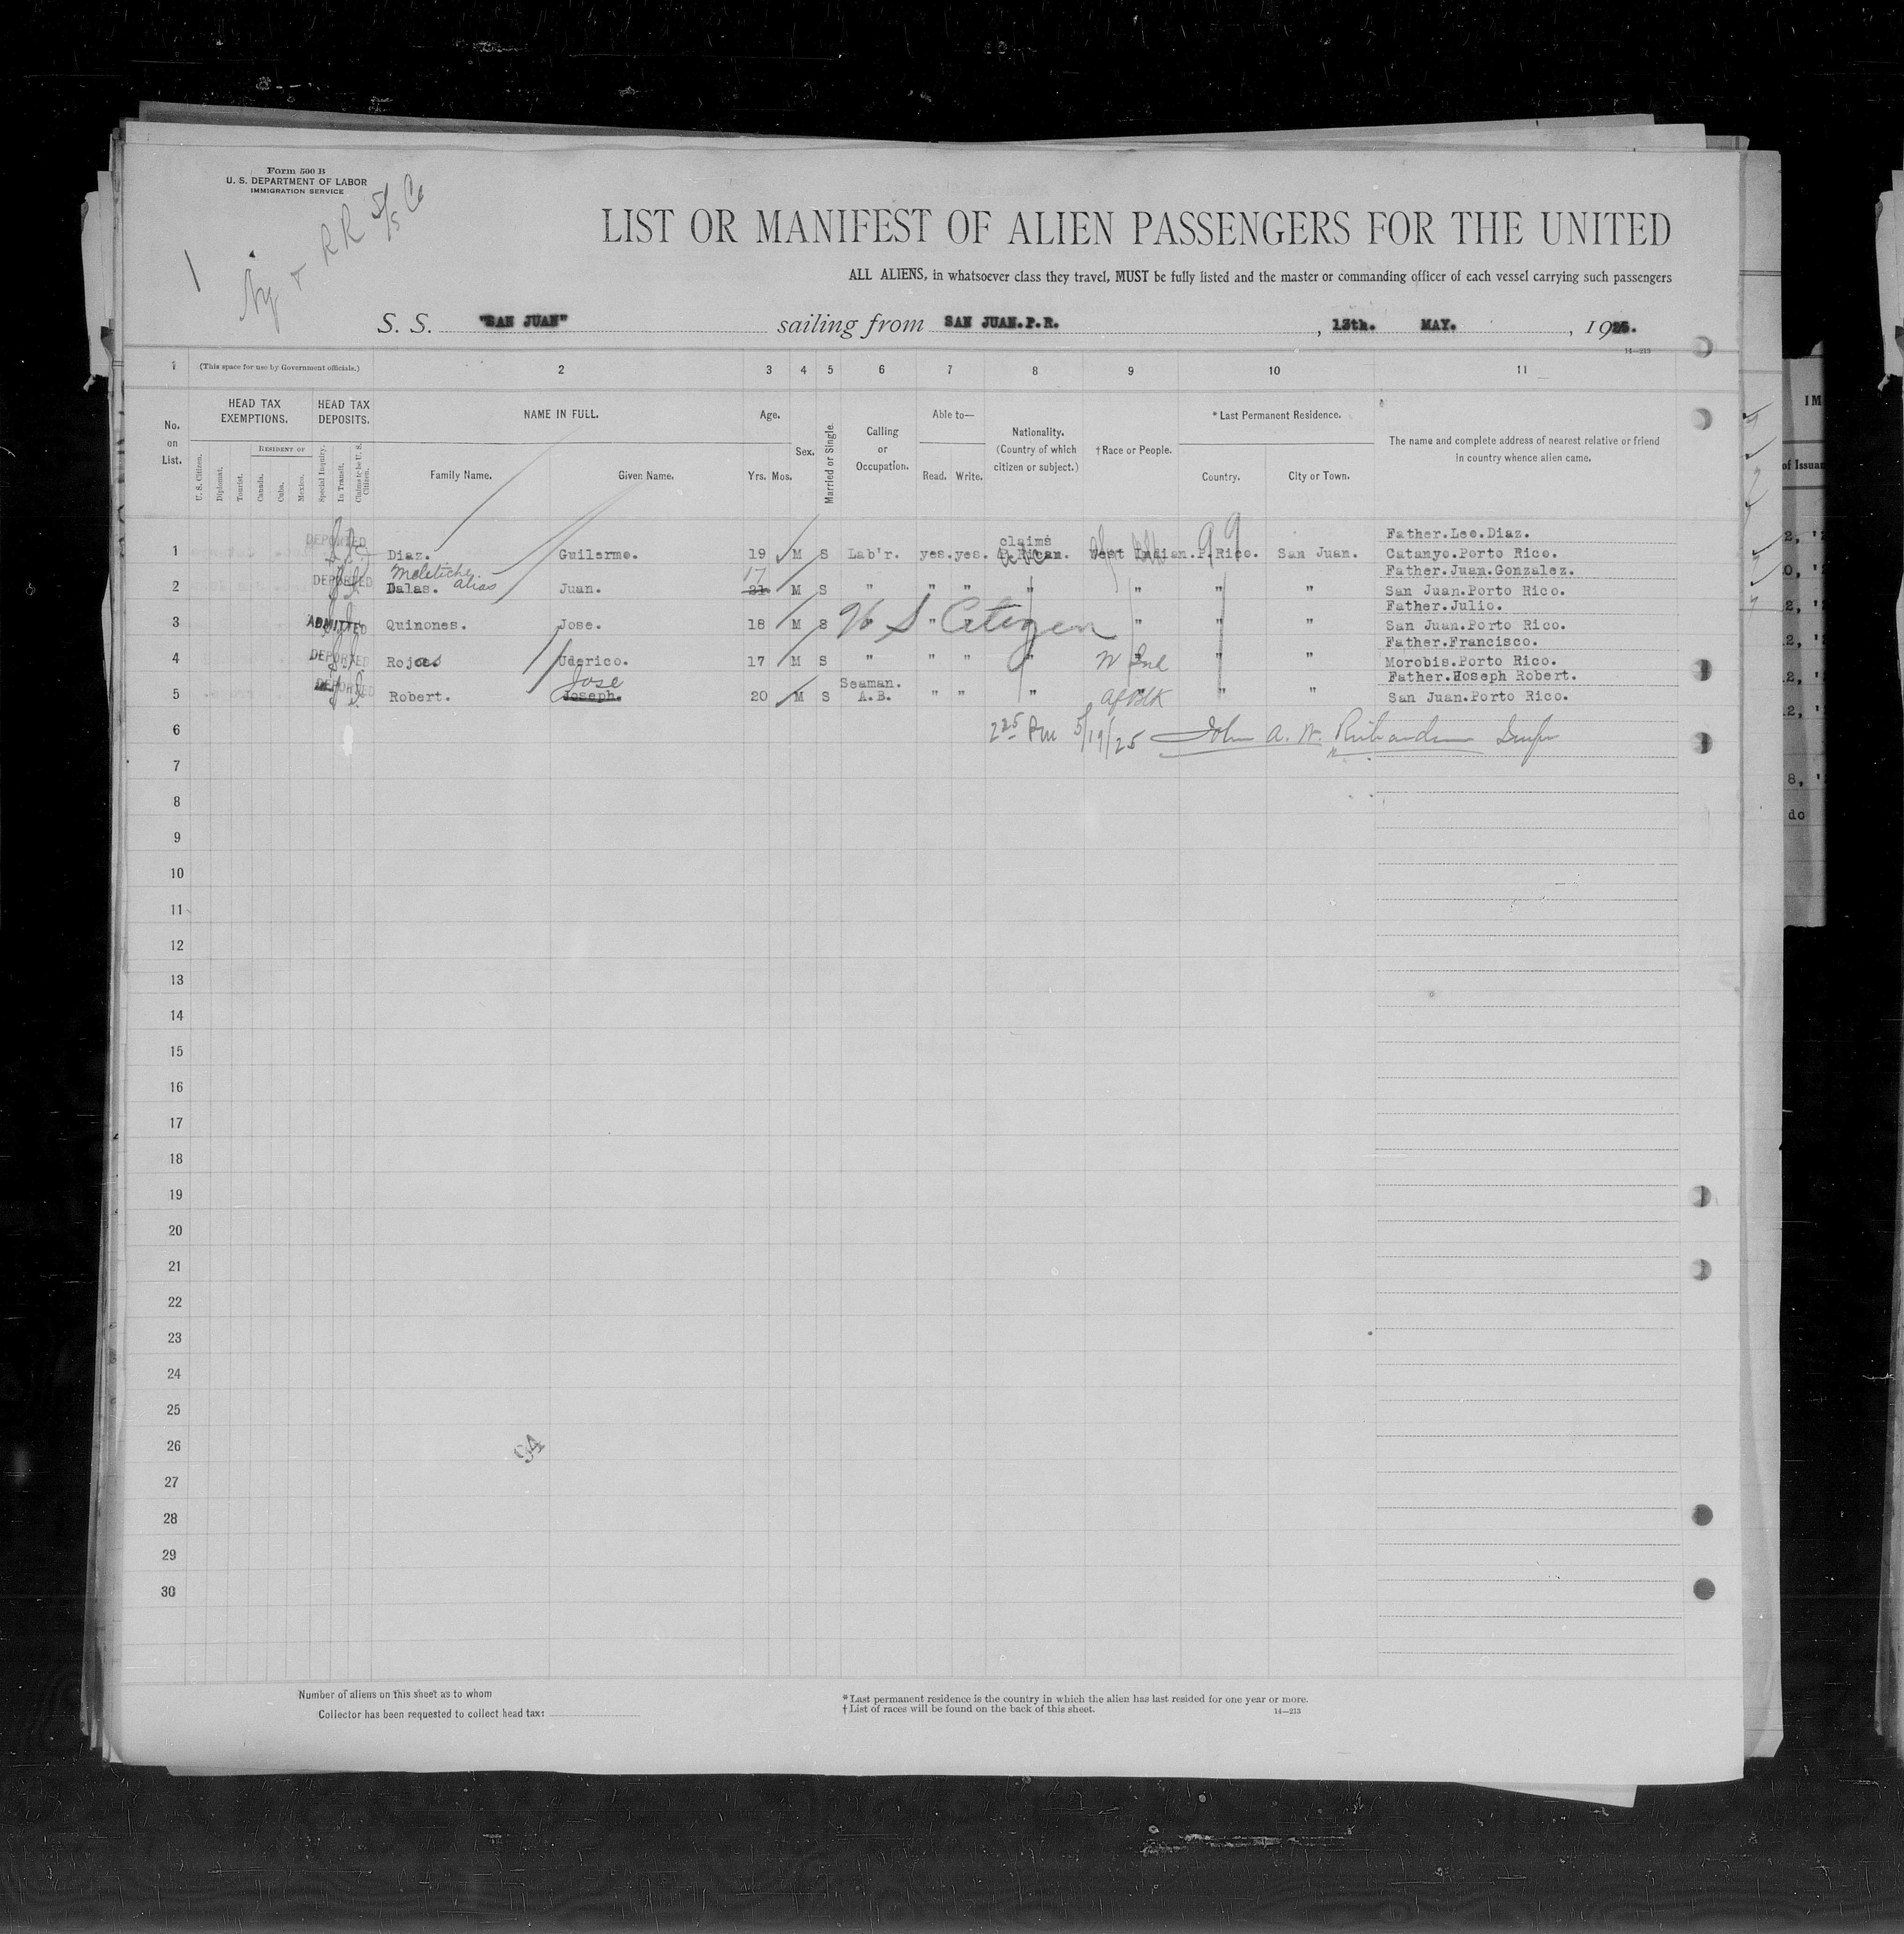 Form 500 B
U. S. DEPARTMENT OF LABOR
IMMIGRATION SERVICE
RR 5/5 Co
1
LIST OR MANIFEST OF ALIEN PASSENGERS FOR THE UNITED
ALL ALIENS, in whatsoever class they travel, MUST be fully listed and the master or commanding officer of each vessel carrying such passengers
S. S. "SAN JUAN" sailing from SAN JUAN.P.R. , 13th. MAY. , 1925.
14—213
1 (This space for use by Government officials.) 2 3 4 5 6 7 8 9 10 11
No. on List. HEAD TAX EXEMPTIONS. HEAD TAX DEPOSITS. NAME IN FULL. Age. Sex. Married or Single. Calling or Occupation. Able to— Nationality. (Country of which citizen or subject.) †Race or People. *Last Permanent Residence. The name and complete address of nearest relative or friend in country whence alien came.
U. S. Citizen. Diplomat. Tourist. RESIDENT OF Canada. Cuba. Mexico. Special Inquiry. In Transit. Claims to be U. S. Citizen. Family Name. Given Name. Yrs. Mos. Read. Write. Country. City or Town.
claims 99 Father.Leo.Diaz.
1 DEPORTED Diaz. Guilermo. 19 M S Lab'r. yes. yes. P.Rican. West Indian. P.Rico. San Juan. Catanyo.Porto Rico.
Meletiche 17 Father.Juan.Gonzalez.
2 DEPORTED Dalas. alias Juan. 21 M S " " " " " " " San Juan.Porto Rico.
Father.Julio.
3 ADMITTED Quinones. Jose. 18 M S U S Citizen " " " " San Juan.Porto Rico.
Father.Francisco.
4 DEPORTED Rojas Uderico. 17 M S " " " " W Ind " " Morobis.Porto Rico.
Jose Seaman. Father.Hoseph Robert.
5 DEPORTED Robert. Joseph. 20 M S A.B. " " " Af Blk " " San Juan.Porto Rico.
6 2 25 Pm 5/19/25 John A. W. Richardson Inspr
7
8
9
10
11
12
13
14
15
16
17
18
19
20
21
22
23
24
25
26
94
27
28
29
30
Number of aliens on this sheet as to whom
Collector has been requested to collect head tax:
*Last permanent residence is the country in which the alien has last resided for one year or more.
†List of races will be found on the back of this sheet. 14—213
IM
of Issuan
2, '
0, '
2, '
2, '
2, '
2, '
8, '
do